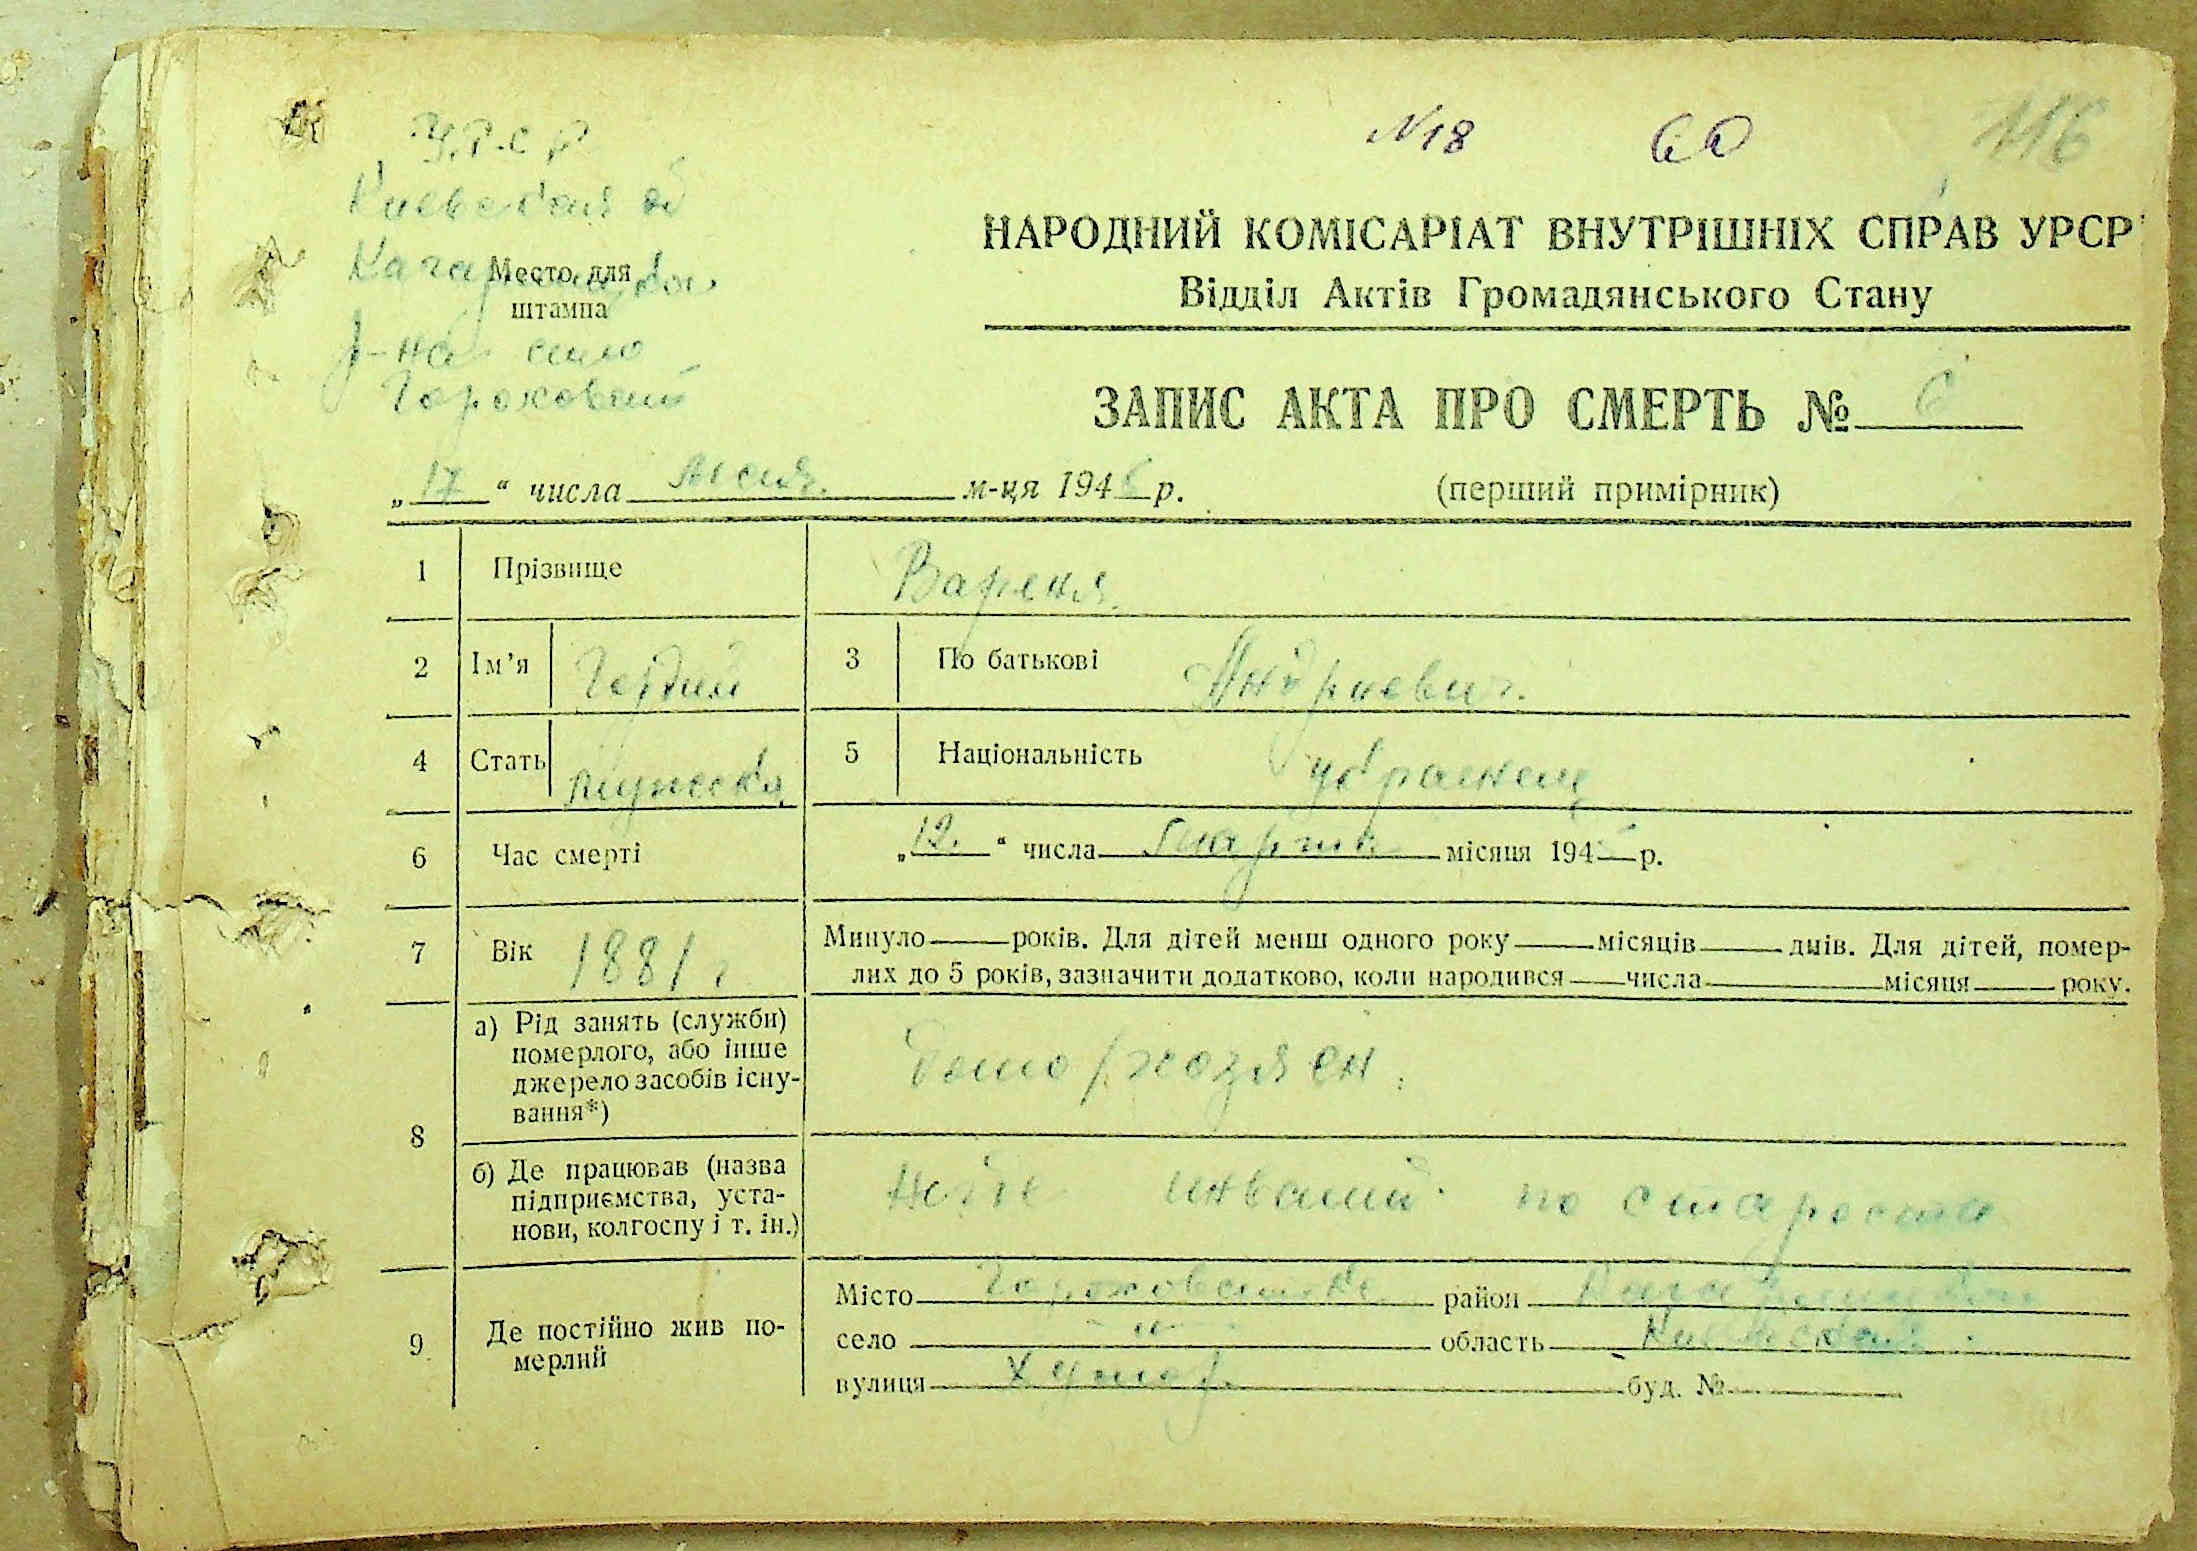 №18 60 116
У.Р.С.Р
Киевская об
Место для
штампа
р-на село
НАРОДНИЙ КОМІСАРІАТ ВНУТРІШНІХ СПРАВ УРСР
Відділ Актів Громадянського Стану
ЗАПИС АКТА ПРО СМЕРТЬ № 6
„17“ числа м-ця 194 р.
(перший примірник)
1 Прізвище Вареня
2 Ім’я Гордий 3 По батькові Андриевич.
4 Стать мужска 5 Національність украинец
6 Час смерті „12.“ числа марта місяця 194 р.
7 Вік 1881 г Минуло року. Для дітей менш одного року місяців днів. Для дітей, помер-
лих до 5 років, зазначити додатково, коли народився числа місяця року.
8 а) Рід занять (служби)
померлого, або інше
джерело засобів існу-
вання*)
домохозяен.
б) Де працював (назва
підприємства, уста-
нови, колгоспу і т. ін.)
инвалид по старости
9 Де постійно жив по-
мерлий
Місто район
село -"- область Киевская.
вулиця Хутор. буд. №